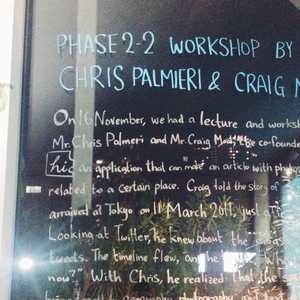 PHASE 2-2 WORKSHOP BY
CHRIS PALMIERI & CRAIG M
On 16 November, we had a lecture and worksh
Mr. Chris Palmeri and Mr. Craig Mod, the co-founde
hi an application that can make an article with photog
related to a certain place. Craig told the story of
arrived at Tokyo on 11 March 2011, just afte
Looking at Twitter, he knew about the disas
tweets. The timeline flew, and he
now?" With Chris, he realized that the s